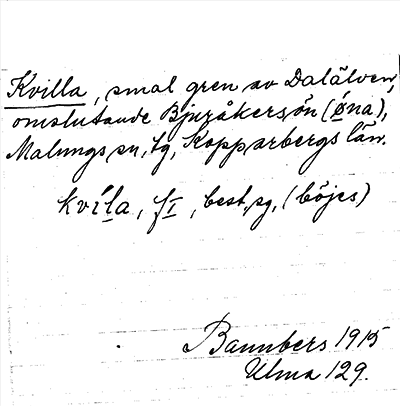 Kvilla, smal gren av Dalälven,
omslutande Bjuråkersön (øna),
Malungs sn, tg, Kopparbergs län.
kvíla, f I, best. sg. (böjes)
Bannbers 1915
Ulma 129.